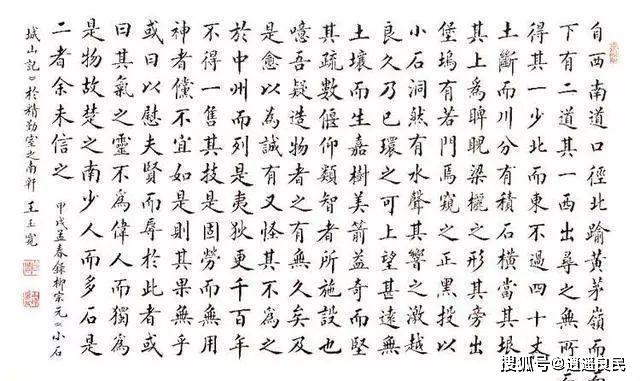 自西南道口徑北踰黃茅嶺而
下有二道其一西出尋之無所
得其一少北而東不過四十丈
土斷而川分有積石橫當其垠
其上爲睥睨梁欐之形其旁出
堡塢有若門焉窺之正黑投以
小石洞然有水聲其響之激越
良久乃已環之可上望甚遠無
土壤而生嘉樹美箭益奇而堅
其疏數偃仰類智者所施設也
噫吾疑造物者之有無久矣及
是愈以為誠有又怪其不為之
於中州而列是夷狄更千百年
不得一售其技是固勞而無用
神者儻不宜如是則其果無乎
或曰以慰夫賢而辱於此者或
曰其氣之靈不為偉人而獨為
是物故楚之南少人而多石是
二者余未信之
甲戌孟春錄柳宗元《小石
城山記》於精勤室之南軒 王玉寬
搜狐号@逍遥良民